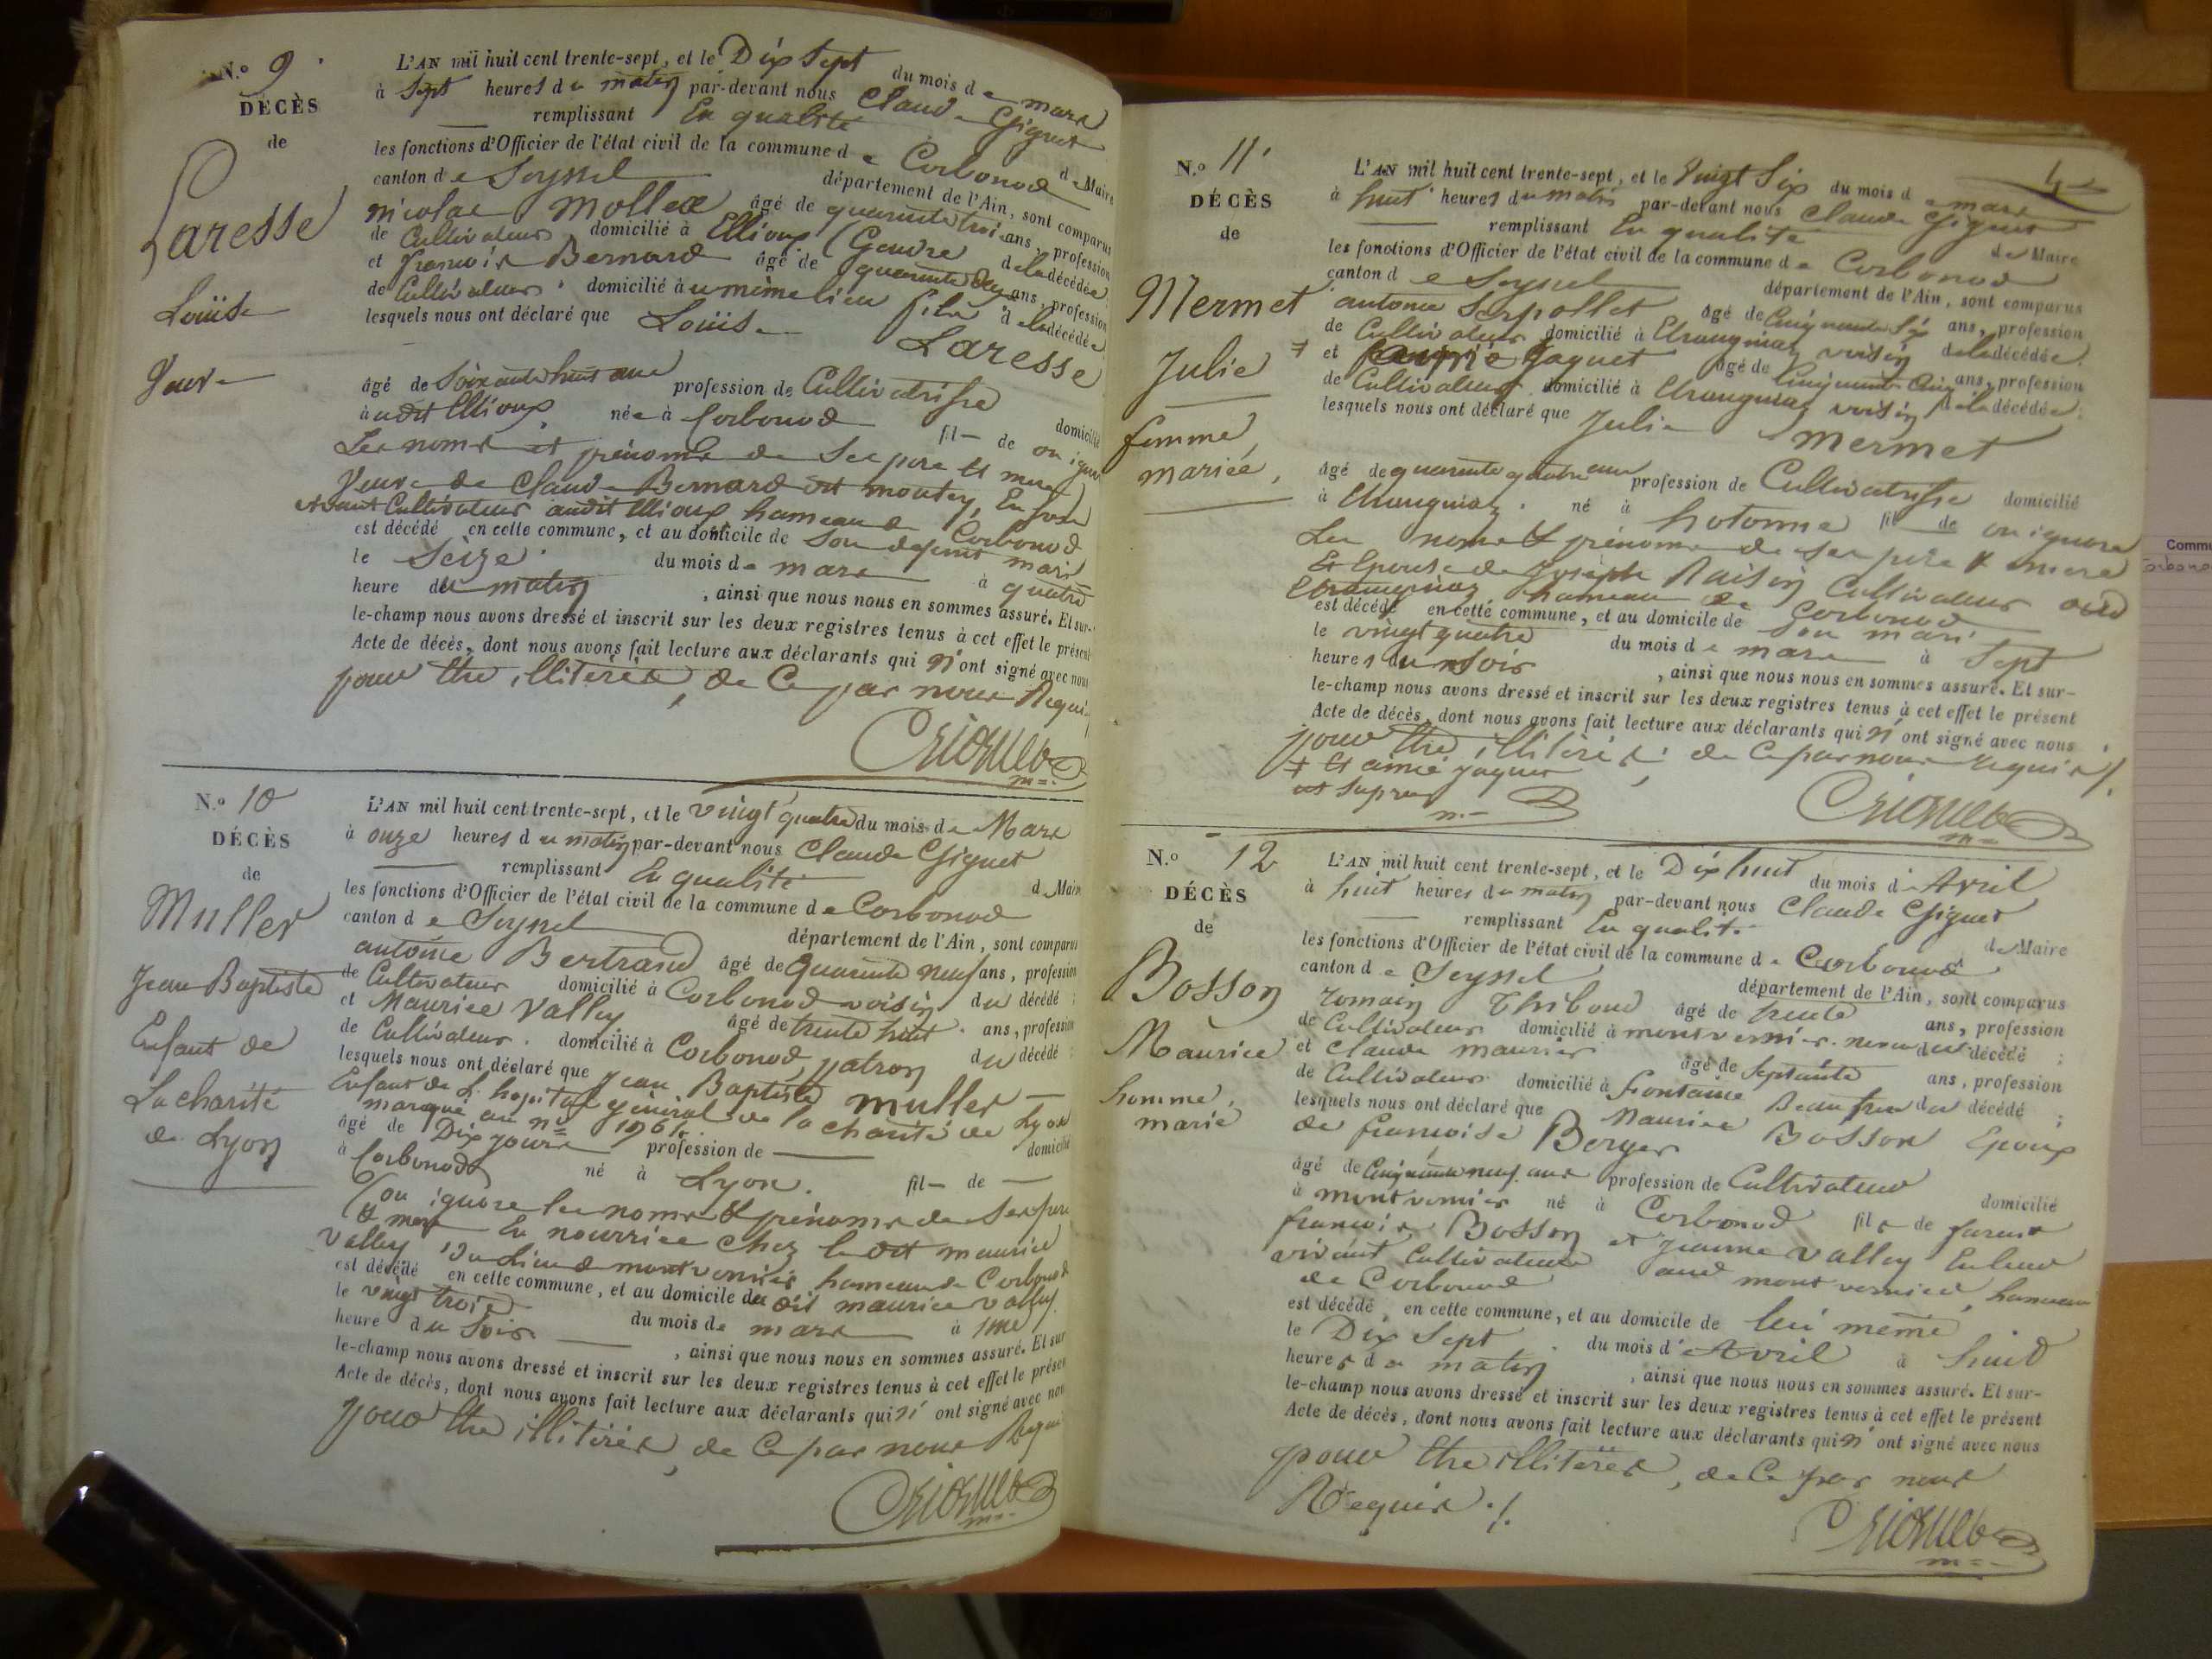 N.o 9.
DÉCÈS
de
Laresse
Louïse
Veuve
L'AN mil huit cent trente-sept, et le Dix Sept du mois de mars
à Sept heures du matin par-devant nous Claude Gignet
remplissant En qualité de Maire
les fonctions d'Officier de l'état civil de la commune de Corbonod
canton de Seyssel département de l'Ain, sont comparus
nicolas Mollex âgé de quarante trois ans, profession
de Cultivateur domicilié à Ellioux (Gendre de la décédée
et françois Bernard âgé de quarante ans, profession
de Cultivateur. domicilié à u même lieu fils de la décédée
lesquels nous ont déclaré que Louïse Laresse
âgé de Soixante huit ans profession de Cultivatrisse domicilié
à udit Ellioux née à Corbonod fil— de on ignore
Les noms et prénoms de Ses pere et mere
Veuve de Claude Bernard dit moutey, En son
vivant Cultivateur audit Ellioux hameau de Corbonod
est décédé en cette commune, et au domicile de Son defunt mari
le Seize du mois de mars à quatre
heure du matin , ainsi que nous nous en sommes assuré. Et sur-
le-champ nous avons dressé et inscrit sur les deux registres tenus à cet effet le présent
Acte de décès, dont nous avons fait lecture aux déclarants qui n'ont signé avec nous
pour être illitérés, de Ce par nous Requis
N.o 10
DÉCÈS
de
Muller
Jean Baptiste
Enfant de
La charité
de Lyon
L'AN mil huit cent trente-sept, et le vingt quatre du mois de Mars
à onze heures du matin par-devant nous Claude Gignet
remplissant En qualité de Maire
les fonctions d'Officier de l'état civil de la commune de Corbonod
canton de Seyssel département de l'Ain, sont comparus
antoine Bertrand âgé de quarante neuf ans, profession
de Cultivateur domicilié à Corbonod voisin du décédé ;
et Maurice Valley âgé de trente huit. ans, profession
de Cultivateur. domicilié à Corbonod patron du décédé ;
lesquels nous ont déclaré que Jean Baptiste muller —
Enfant de L'hopital général de la charité de Lyon
marqué au no
âgé de Dix jours profession de — domicilié
à Corbonod né à Lyon. fil— de —
(on ignore les noms et prénoms de Ses pere
& mere En nourrice chez le dit maurice
Valley du Lieu de montvernier hameau de Corbonod
est décédé en cette commune, et au domicile du dit maurice valley
le vingt trois du mois de mars à une
heure du Soir , ainsi que nous nous en sommes assuré. Et sur
le-champ nous avons dressé et inscrit sur les deux registres tenus à cet effet le présen
Acte de décès, dont nous avons fait lecture aux déclarants qui n' ont signé avec nou
pour être illitérés, de Ce par nous Requi
4
N.o 11.
DÉCÈS
de
Mermet
Julie
femme
mariée,
L'AN mil huit cent trente-sept, et le Vingt Six du mois de mars
à huit heures du matin par-devant nous Claude Gignet
remplissant En qualité de Maire
les fonctions d'Officier de l'état civil de la commune de Corbonod
canton de Seyssel département de l'Ain, sont comparus
antoine Serpollet âgé de Cinquante Six ans, profession
de Cultivateur domicilié à Etranginaz voisin de la décédée
et Jaquet âgé de Cinquante Cinq ans, profession
de Cultivateur domicilié à Etranginaz voisin de la décédée ;
lesquels nous ont déclaré que Julie Mermet
âgé de quarante quatre ans profession de Cultivatrisse domicilié
à Etranginaz. né à hotonne fil de on ignore
Les noms & prénoms de Ses pere & mere
Et Epouse de Joseph Raisin Cultivateur
Etranginaz hameau de Corbonod
est décédé en cette commune, et au domicile de Son mari
le vingt quatre du mois de mars à Sept
heures du Soir , ainsi que nous nous en sommes assuré. Et sur-
le-champ nous avons dressé et inscrit sur les deux registres tenus à cet effet le présent
Acte de décès, dont nous avons fait lecture aux déclarants qui n' ont signé avec nous ,
pour être illitérés, de Ce par nous Requis /.
Et aimé jaquet
ut supra
N.o 12
DÉCÈS
de
Bosson
Maurice
homme,
marié
L'AN mil huit cent trente-sept, et le Dix huit du mois d'Avril
à huit heures du matin par-devant nous Claude Gignet
remplissant En qualité de Maire
les fonctions d'Officier de l'état civil de la commune de Corbonod
canton de Seyssel département de l'Ain, sont comparus
romain Thiboud âgé de trente ans, profession
de Cultivateur domicilié à montvernier. neveu du décédé ;
et Claude maurier âgé de Septante ans, profession
de Cultivateur domicilié à fontaine Beau frere du décédé ;
lesquels nous ont déclaré que Maurice Bosson Epoux
de françoise Berger
âgé de Cinquante neuf ans profession de Cultivateur domicilié
à montvernier né à Corbonod fils de feu
françois Bosson et Jeanne Valley En leur
vivant Cultivateurs aud montvernier, hameau
de Corbonod
est décédé en cette commune, et au domicile de lui même
le Dix Sept du mois d'Avril à huit
heures du matin , ainsi que nous nous en sommes assuré. Et sur-
le-champ nous avons dressé et inscrit sur les deux registres tenus à cet effet le présent
Acte de décès, dont nous avons fait lecture aux déclarants qui n' ont signé avec nous
pour être illitérés, de Ce par nous
Requis ./.
Commu